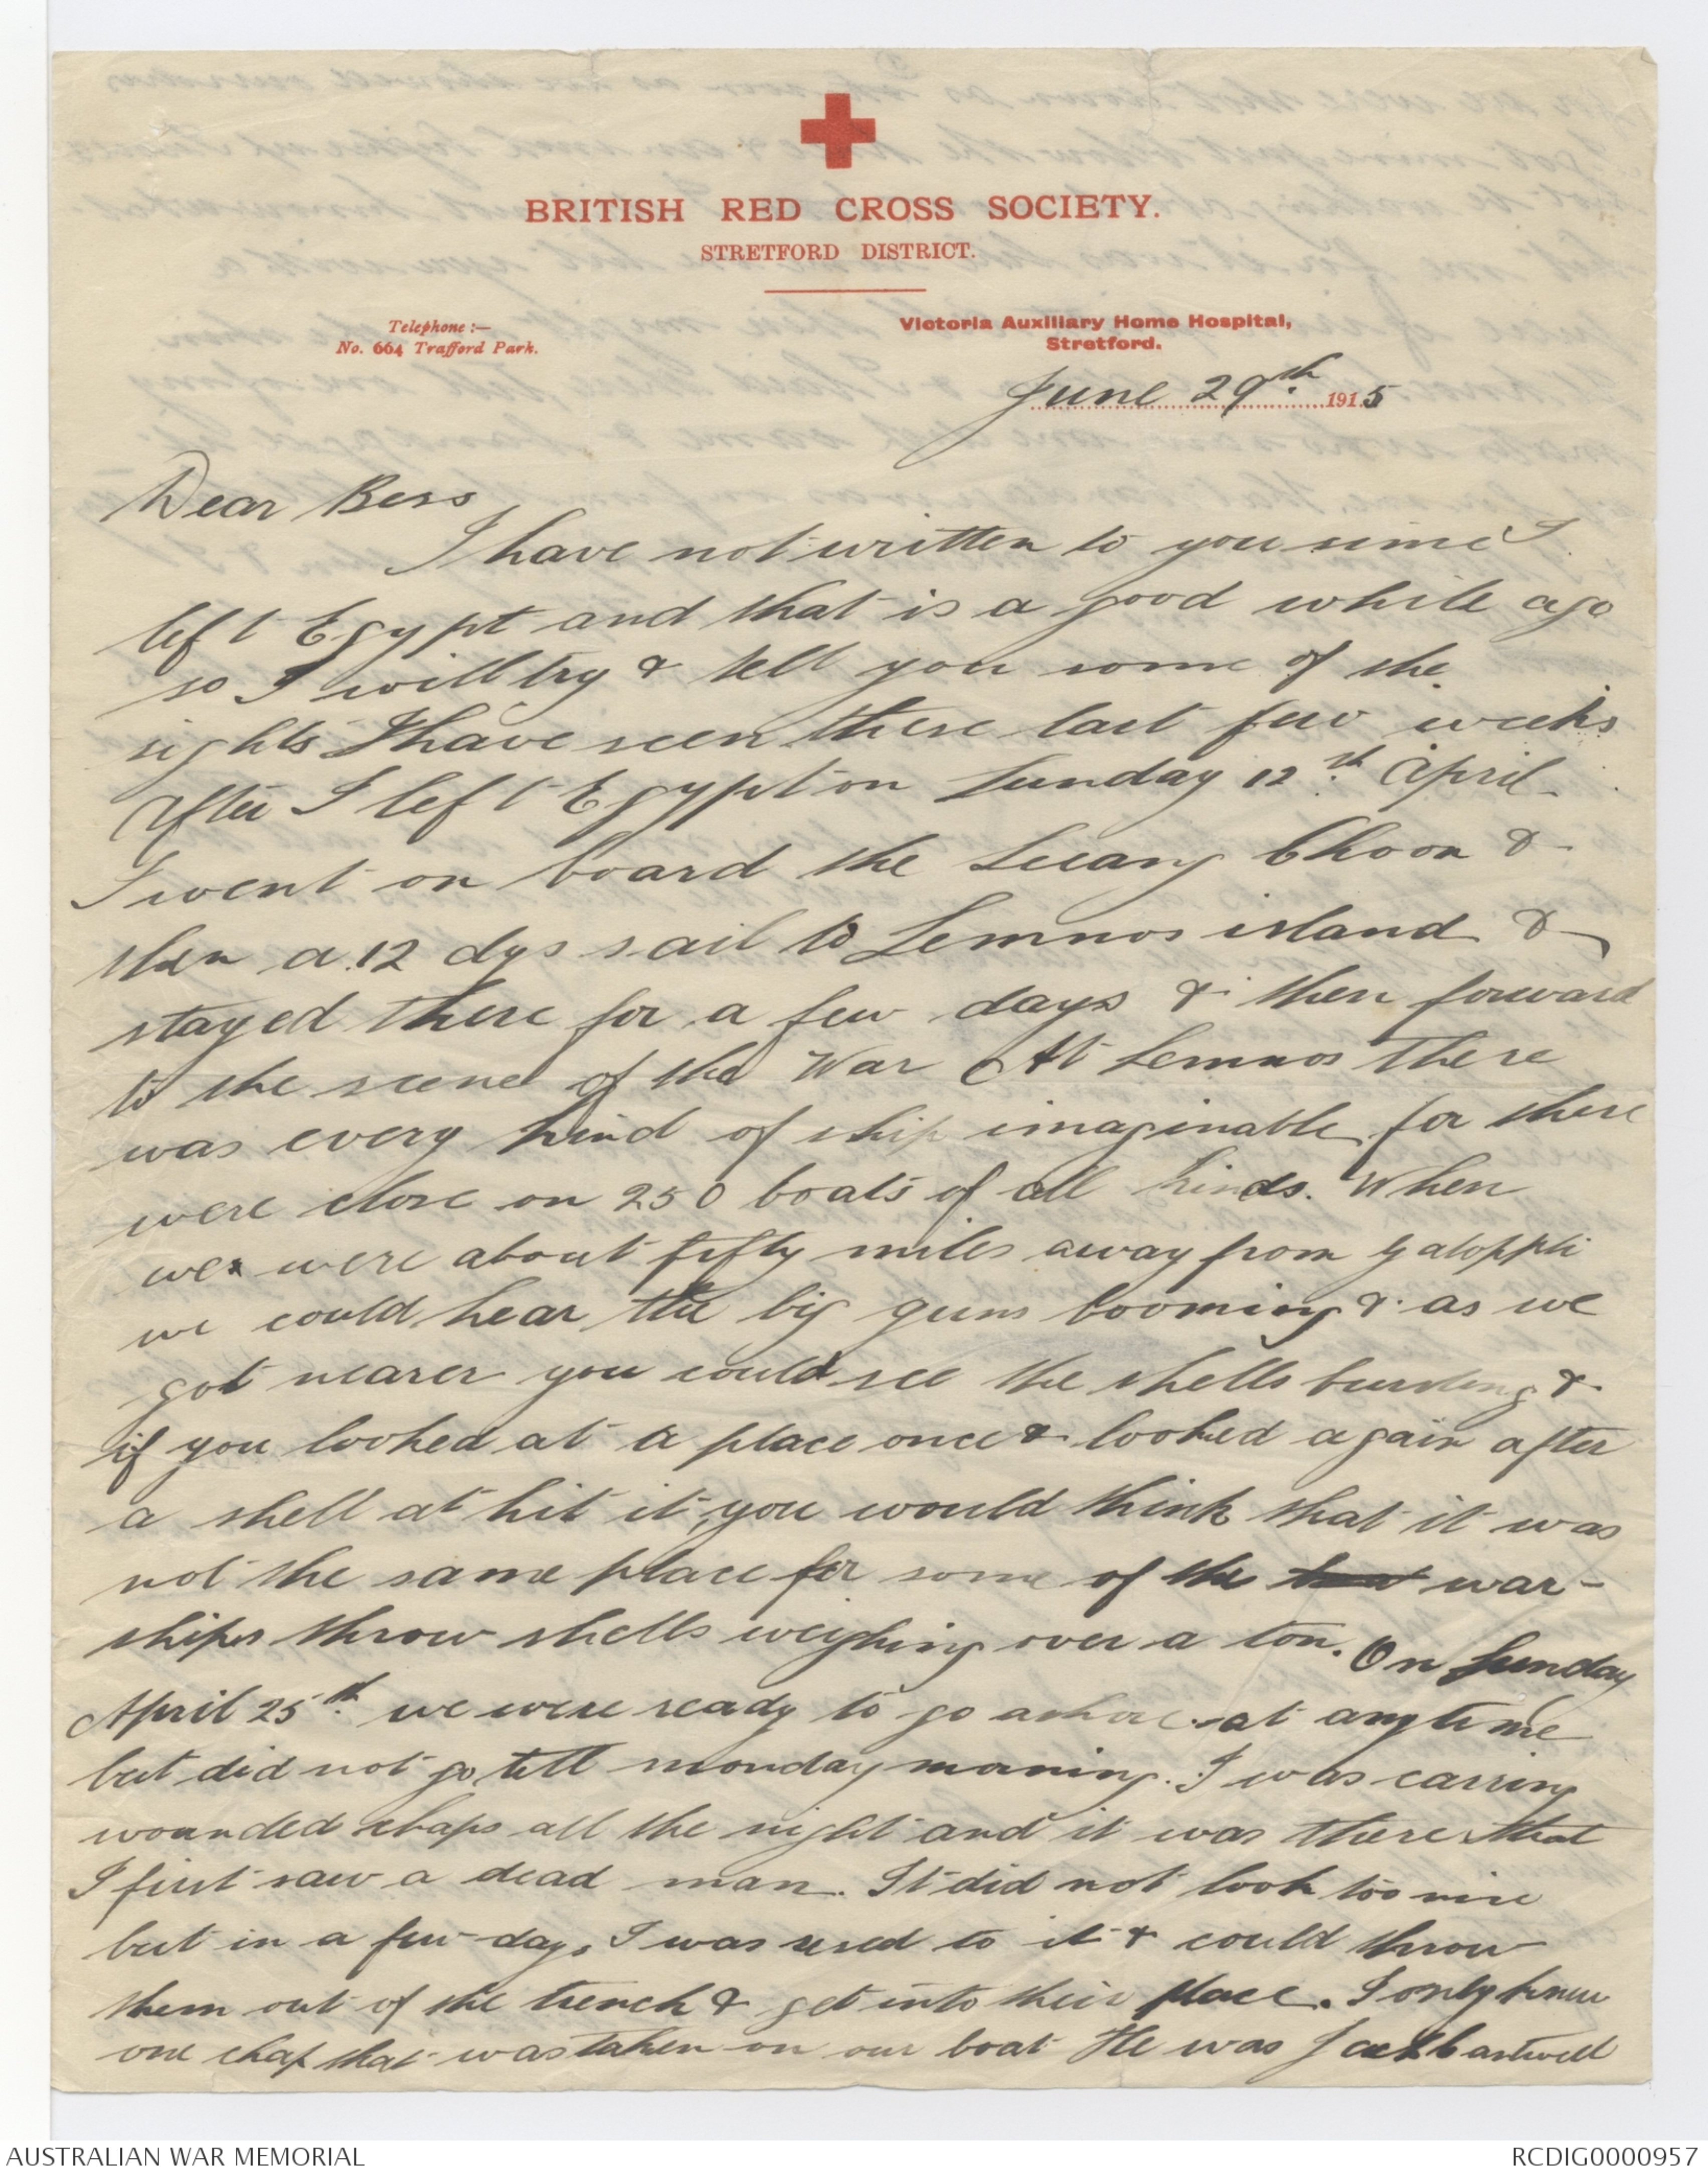 BRITISH RED CROSS SOCIETY.
STRETFORD DISTRICT.
Telephone :—
No. 664 Trafford Park.
Victoria Auxiliary Home Hospital,
Stretford.
June 29th. 1915
Dear Bess
I have not written to you since I
left Egypt and that is a good while ago
so I will try & tell you some of the
sights I have seen these last few weeks
After I left Egypt on Sunday 12th April
I went on board the Suang Choon &
then a 12 dys sail to Lemnos island &
stayed there for a few days & then forward
to the scene of the War At Lemnos there
was every kind of ship imaginable for there
were close on 250 boats of all kinds. When
we were about fifty miles away from Galoppli
we could hear the big guns booming & as we
got nearer you could see the shells bursting &
if you looked at a place once & looked again after
a shell at hit it you would think that it was
not the same place for some of the war-
ships throw shells weighing over a ton. On Sunday
April 25th we were ready to go ashore at anytime
but did not go till monday morning. I was carring
wounded chaps all the night and it was there that
I first saw a dead man. It did not look too nice
but in a few days I was used to it & could throw
them out of the trench & get into their place. I only knew
one chap that was taken on our boat He was Jack Cantwell
AUSTRALIAN WAR MEMORIAL
RCDIG0000957